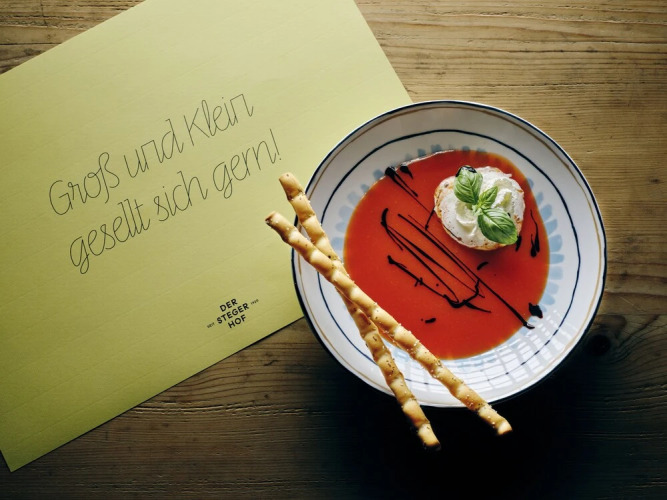 Groß und Klein
gesellt sich gern!
DER
STEGER
HOF